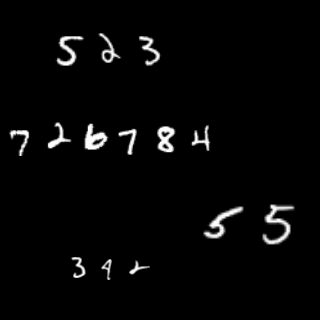 523
726784
55
392